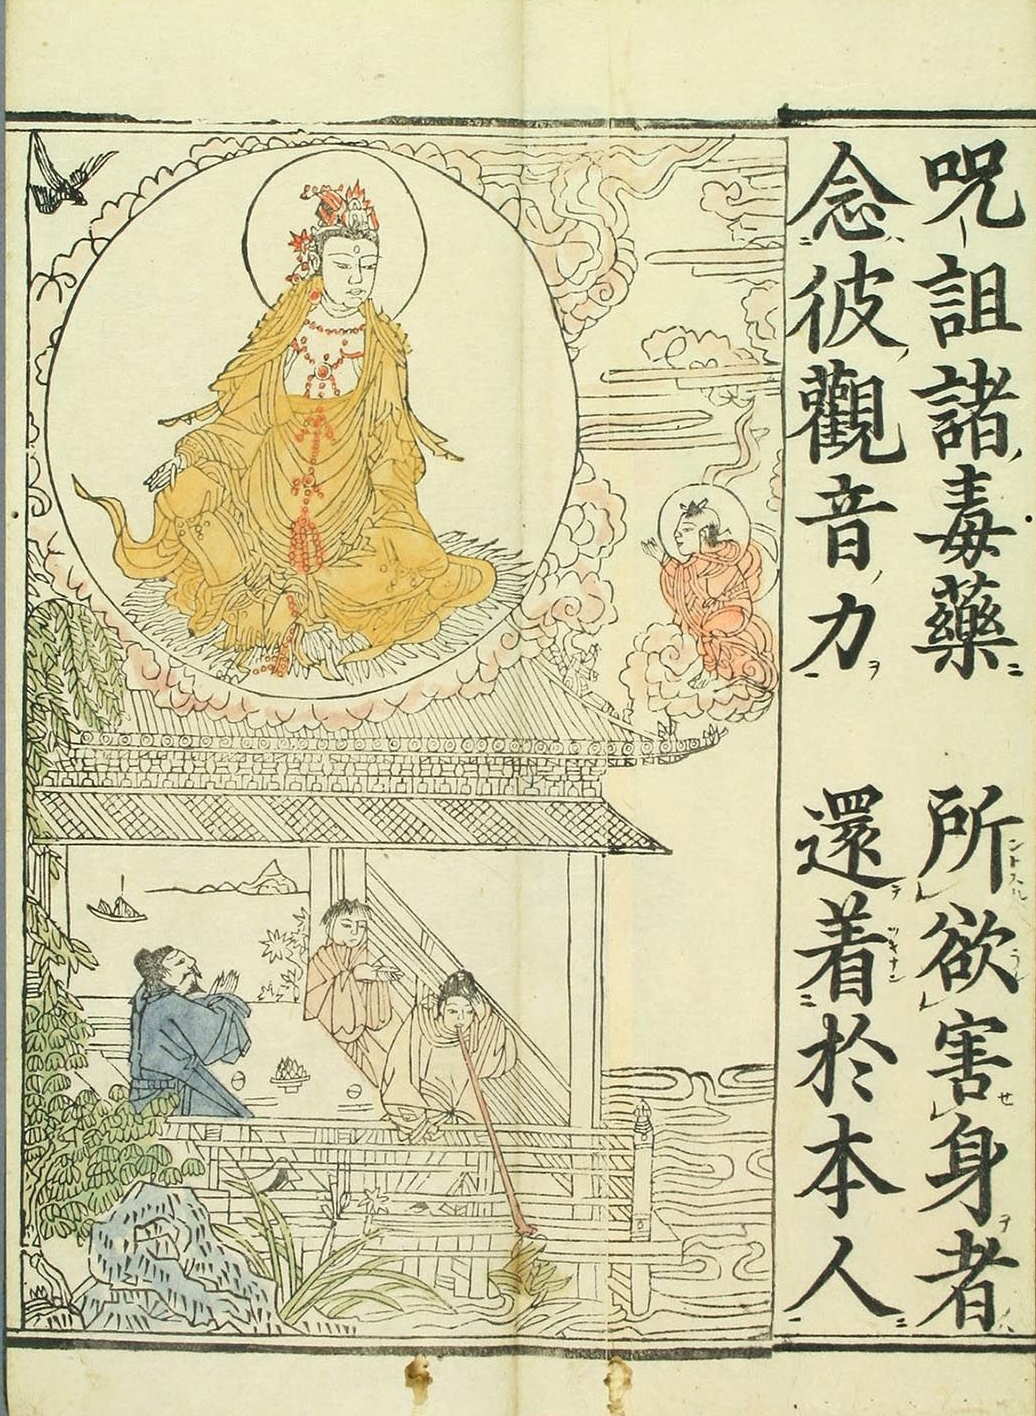 咒詛諸毒藥 所欲害身者
念彼觀音力 還着於本人